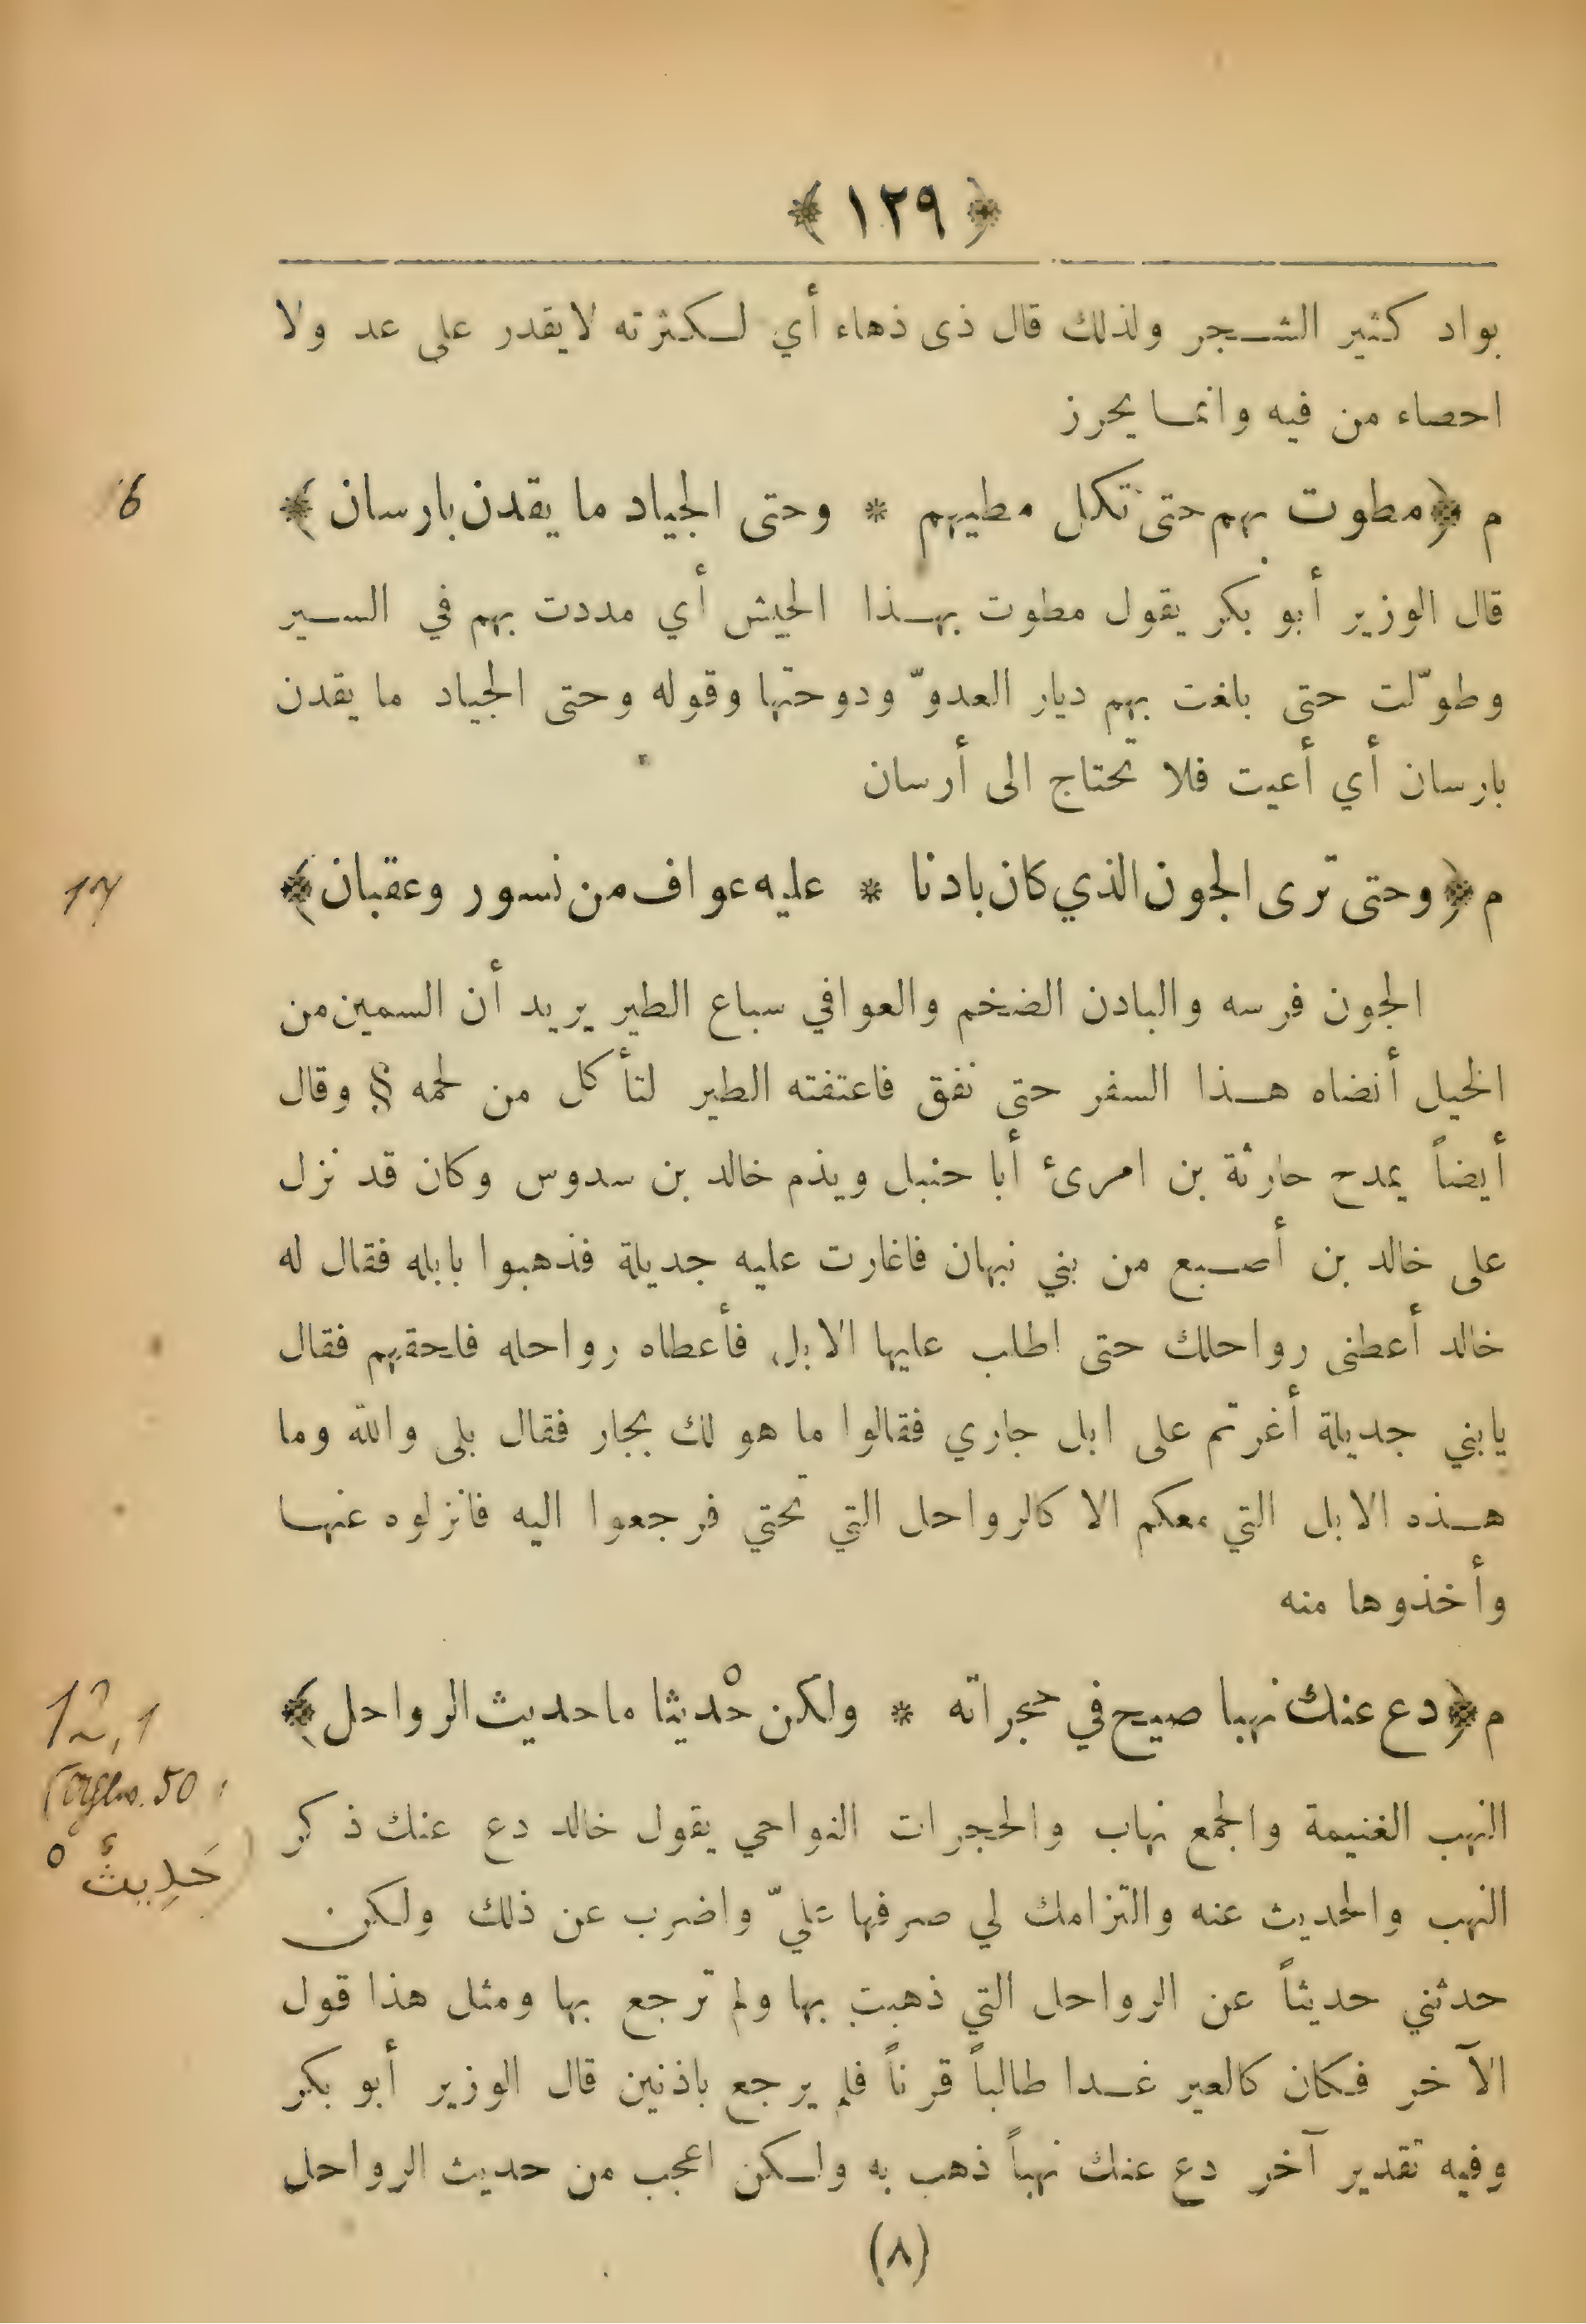 ﴿ ١٢٩ ﴾
بواد كثير الشجر ولذلك قال ذى ذهاء أي لكثرته لايقدر على عد ولا
احصاء من فيه وانما يحرز
م ﴿ مطوت بهم حتى تكل مطيهم * وحتى الجياد ما يقدن بارسان ﴾
6
قال الوزير أبو بكر يقول مطوت بهذا الجيش أي مددت بهم في السير
وطوّلت حتى بلغت بهم ديار العدوّ ودوحتها وقوله وحتى الجياد ما يقدن
بارسان أي أعيت فلا تحتاج الى أرسان
م ﴿ وحتى ترى الجون الذي كان بادنا * عليه عواف من نسور وعقبان ﴾
17
الجون فرسه والبادن الضخم والعوافي سباع الطير يريد أن السمين من
الخيل أنضاه هذا السفر حتى نفق فاعتفته الطير لتأكل من لحمه § وقال
أيضاً يمدح حارثة بن امرئ أبا حنبل ويذم خالد بن سدوس وكان قد نزل
على خالد بن أصبع من بني نبهان فاغارت عليه جديلة فذهبوا بابله فقال له
خالد أعطنى رواحلك حتى اطلب عليها الابل فأعطاه رواحله فلحقهم فقال
يابني جديلة أغرتم على ابل جاري فقالوا ما هو لك بجار فقال بلى والله وما
هذه الابل التي معكم الا كالرواحل التي تحتي فرجعوا اليه فانزلوه عنها
وأخذوها منه
م ﴿ دع عنك نهبا صيح في حجراته * ولكن حديثا ماحديث الرواحل ﴾
12,1
50
حَدِيثٌ
النهب الغنيمة والجمع نهاب والحجرات النواحي يقول خالد دع عنك ذكر
النهب والحديث عنه والتزامك لي صرفها عليّ واضرب عن ذلك ولكن
حدثني حديثاً عن الرواحل التي ذهبت بها ولم ترجع بها ومثل هذا قول
الآخر فكان كالعير غدا طالباً قرناً فلم يرجع باذنين قال الوزير أبو بكر
وفيه تقدير آخر دع عنك نهباً ذهب به ولكن اعجب من حديث الرواحل
(٨)